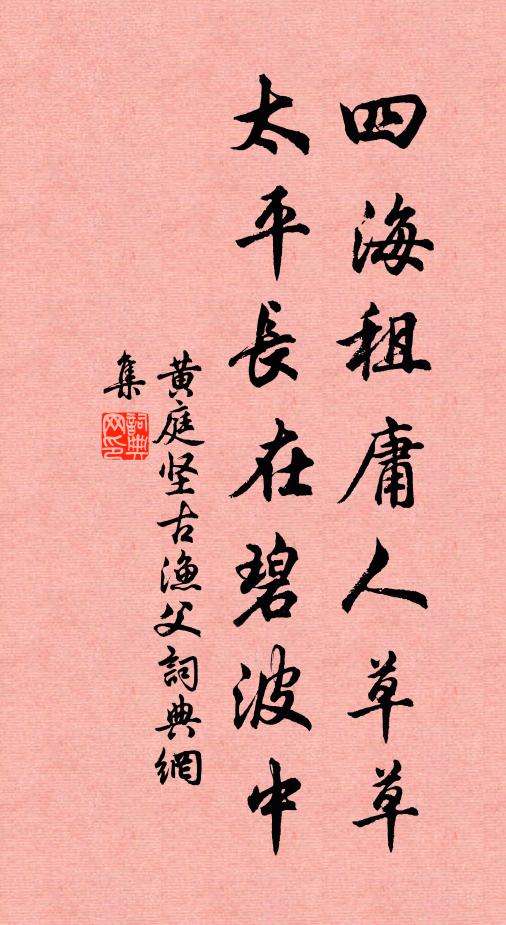 四海租庸人草草
太平長在碧波中
黄庭坚古漁父詞典網
集
詞典網印